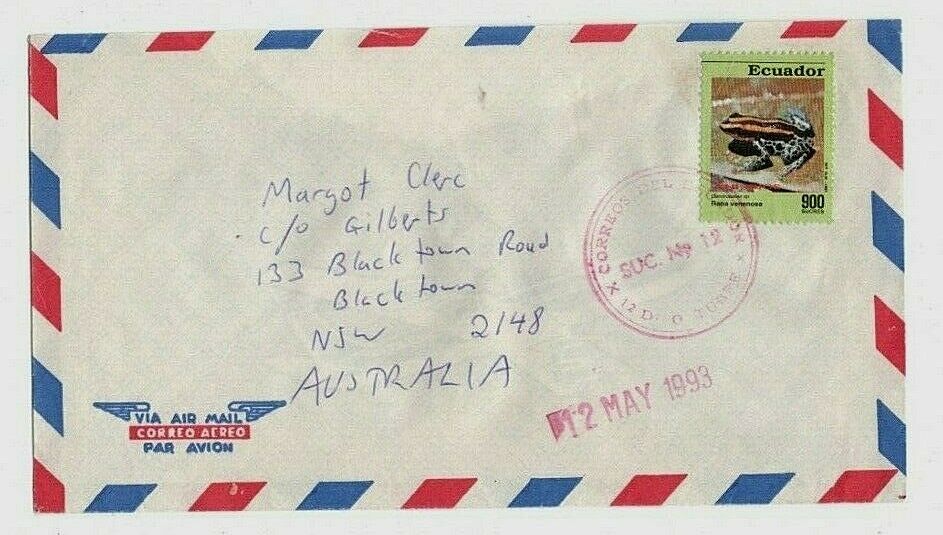 Ecuador
Rana venenosa
900
SUCRES
Margot Clerc
c/o Gilberts
133 Blacktown Road
Blacktown
NSW 2148
AUSTRALIA
CORREOS DEL ECUADOR
SUC. No 12
12 D. O
12 MAY 1993
VIA AIR MAIL
CORREO AEREO
PAR AVION